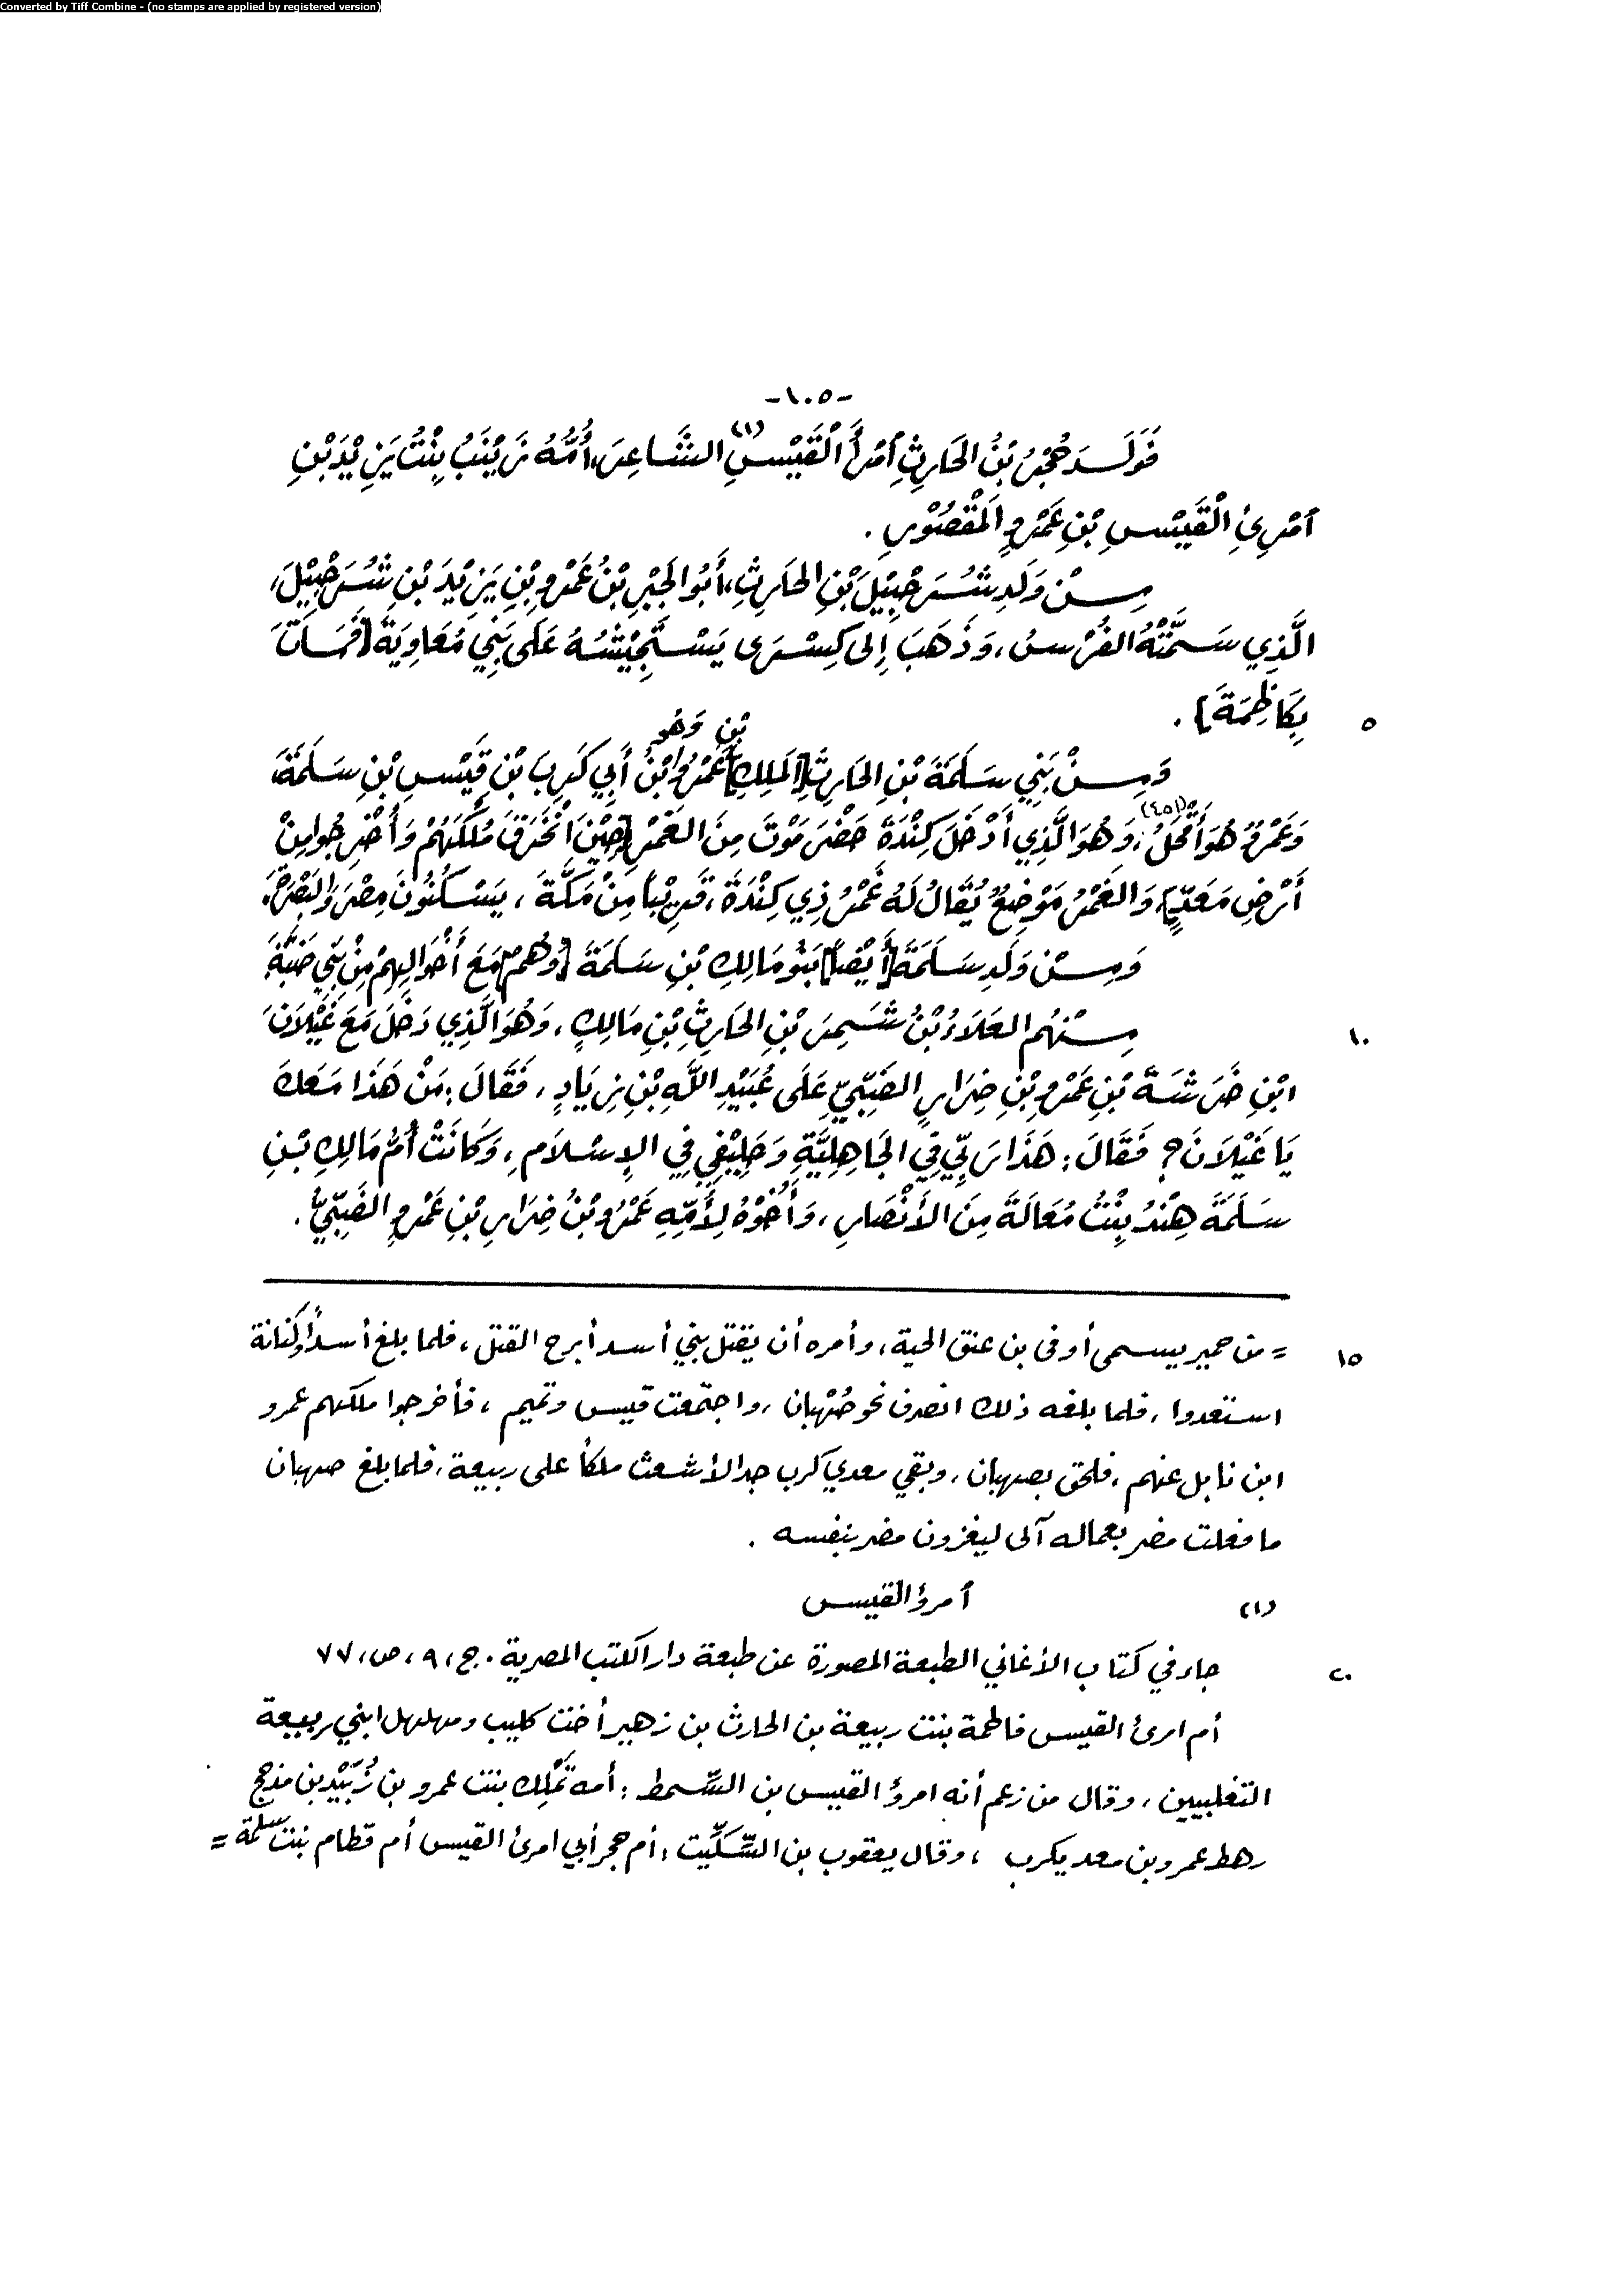 Converted by Tiff Combine - (no stamps are applied by registered version)
-١٠٥-
فَوَلَدَ حُجْرُ بْنُ الحَارِثِ آمْرَأَ الْقَيْسِ (١) الشَّاعِرَ، أُمُّهُ زَيْنَبُ بِنْتُ يَزِيْدَ بْنِ
آمْرِئِ الْقَيْسِ بْنِ عَمْرٍو الْمَقْصُوْرِ .
مِنْ وَلَدِ شُرَحْبِيْلَ بْنِ الحَارِثِ، أَبُو الجَبْرِ بْنُ عَمْرِو بْنِ يَزِيْدَ بْنِ شُرَحْبِيْلَ،
الَّذِي سَمَّتْهُ الفُرْسُ، وَذَهَبَ إِلى كِسْرَى يَسْتَجِيْشُهُ عَلَى بَنِي مُعَاوِيَةَ [فَمَاتَ
٥ بِكَاظِمَةَ] .
بْنِ وَهُو
وَمِنْ بَنِي سَلَمَةَ بْنِ الحَارِثِ [المَلِكِ] عَمْرُو ابْنُ أَبِي كَرِبَ بْنِ قَيْسِ بْنِ سَلَمَةَ،
وَعَمْرٌو هُوَ أَمْحَلُ (٤٥١)، وَهُوَ الَّذِي أَدْخَلَ كِنْدَةَ حَضْرَمَوْتَ مِنَ الغَمْرِ [حِيْنَ انْخَرَقَ مُلْكَهُمْ وَأُخْرِجُوا مِنْ
أَرْضِ مَعَدٍّ]، وَالغَمْرُ مَوْضِعٌ يُقَالُ لَهُ غَمْرُ ذِي كِنْدَةَ، قَرِيْباً مِنْ مَكَّةَ، يَسْكُنُونَ مِصْرَ وَالبَصْرَةَ.
وَمِنْ وَلَدِ سَلَمَةَ [أَيْضاً] بَنُو مَالِكِ بْنِ سَلَمَةَ [وَهُمْ] مَعَ أَخْوَالِهِمْ مِنْ بَنِي ضَبَّةَ.
١٠ مِنْهُم العَلَاءُ بْنُ شَمِرَ بْنِ الحَارِثِ بْنِ مَالِكٍ، وَهُوَ الَّذِي دَخَلَ مَعَ غَيْلَانَ
ابْنِ خَرَشَةَ بْنِ عَمْرِو بْنِ ضِرَارٍ الضَّبِّيِّ عَلَى عُبَيْدِ اللَّهِ بْنِ زِيَادٍ، فَقَالَ: مَنْ هَذَا مَعَكَ
يَا غَيْلَانَ؟ فَقَالَ: هَذَا رَبِّي فِي الجَاهِلِيَّةِ وَحَلِيْفِي فِي الإِسْلَامِ، وَكَانَتْ أُمُّ مَالِكِ بْنِ
سَلَمَةَ هِنْدُ بِنْتُ مُعَالَةَ مِنَ الأَنْصَارِ، وَأَخُوْهُ لِأُمِّهِ عَمْرُو بْنُ ضِرَارِ بْنِ عَمْرٍو الضَّبِّيُّ.
١٥ = من حمير يسمى أوفى بن عنق الحية، وأمره أن يقتل بني أسد أبرح القتل، فلما بلغ أسداً وكنانة
استعدوا، فلما بلغه ذلك انصرف نحو صُهْبان، واجتمعت قيس وتميم، فأخرجوا ملكهم عمرو
ابن نابل عنهم، فلحق بصهبان، وبقي معدي كرب جد الأشعث ملكاً على ربيعة، فلما بلغ صهبان
ما فعلت مضر بعماله آلى ليغزون مضر بنفسه .
(١) آمرؤ القيس
٢٠ جاء في كتاب الأغاني الطبعة المصورة عن طبعة دار الكتب المصرية . ج، ٩، ص، ٧٧
أم امرئ القيس فاطمة بنت ربيعة بن الحارث بن زهير أخت كليب ومهلهل ابني ربيعة
التغلبيين، وقال من زعم أنه امرؤ القيس بن السِّمط: أمه تَمْلِك بنت عمرو بن زُبَيْد بن مذحج
رهط عمرو بن معد يكرب ، وقال يعقوب بن السِّكِّيت: أم حجر أبي امرئ القيس أم قطام بنت سلمة =